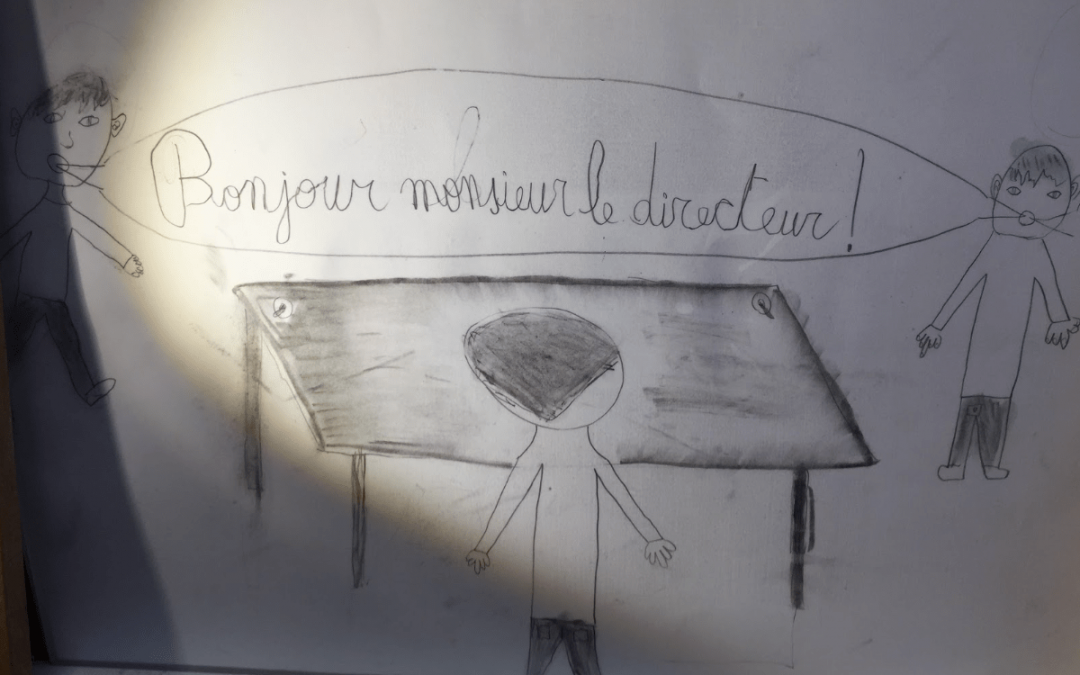 Bonjour monsieur le directeur !